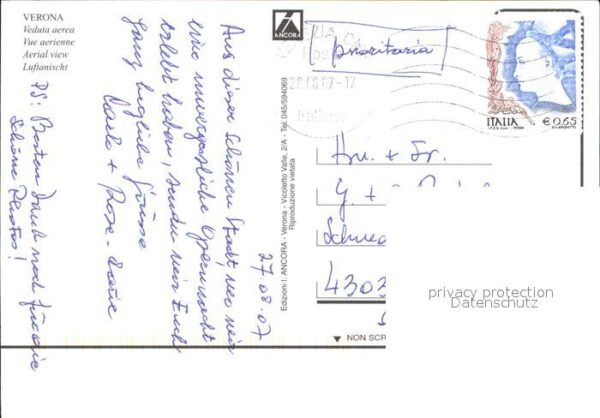 VERONA
Veduta aerea
Vue aerienne
Aerial view
Luftanischt
ANCORA
prioritaria
28.08.07-17
ITALIA
€ 0,65
I.P.Z.S. S.p.A. - ROMA
Aus dieser schönen Stadt, wo wir
eine unvergessliche Opernnacht
erlebt haben, senden wir Euch
ganz herzliche Grüsse
Carlo + Rose-Marie
27.08.07
PS: Besten Dank noch für die
schönen Photos!
Edizioni I. ANCORA - Verona - Vicoletto Valle, 2/A - Tel. 045/594069
Riproduzione vietata
Hrn. + Fr.
G. +
4302
privacy protection
Datenschutz
NON SCR